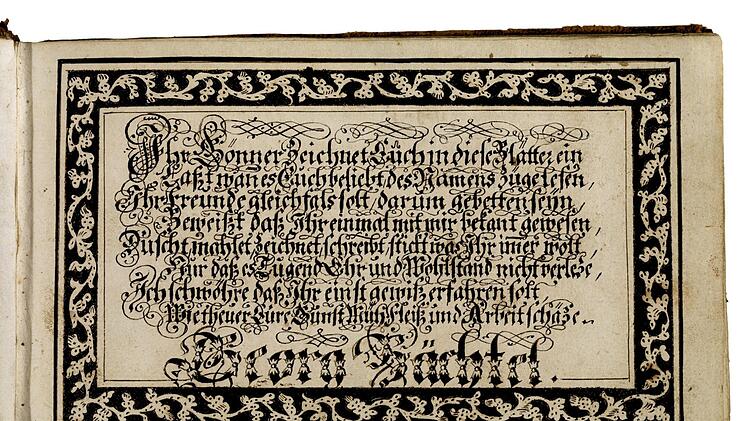 Ihr Gönner zeichnet Euch in diese Blätter ein
Laßt wan es Euch beliebt des Namens Züge lesen,
Ihr Freunde gleichfals solt darum gebetten seyn,
Beweißt daß Ihr einmal mit mir bekant gewesen,
Duscht mahlet zeichnet schreibt stickt was Ihr imer wolt,
Nur daß es Tugend Ehr und Wohlstand nicht verleze,
Ich schwöhre daß Ihr einst gewiß erfahren solt
Wie theuer Eure Gunst Müh Fleiß und Arbeit schäze.
Georg Bächtel.